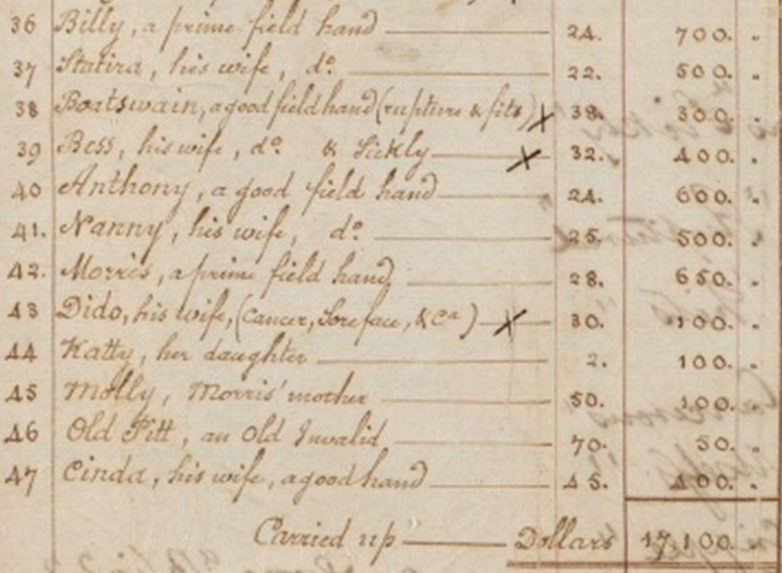 36 Billy, a prime field hand 24. 700. "
37 Statira, his wife, do. 22. 500. "
38 Boatswain, a good field hand (rupture & fits) x 38. 300. "
39 Bess, his wife, do. & Sickly x 32. 400. "
40 Anthony, a good field hand 24. 600. "
41. Nanny, his wife, do. 25. 500. "
42. Morris, a prime field hand 28. 650. "
43 Dido, his wife, (Cancer, Sore face, &Ca) x 30. 100. "
44 Katty, her daughter 2. 100. "
45 Molly, Morris' mother 50. 100. "
46 Old Pitt, an Old Invalid 70. 50. "
47 Cinda, his wife, a good hand 45. 400. "
Carried up Dollars 17,100. "